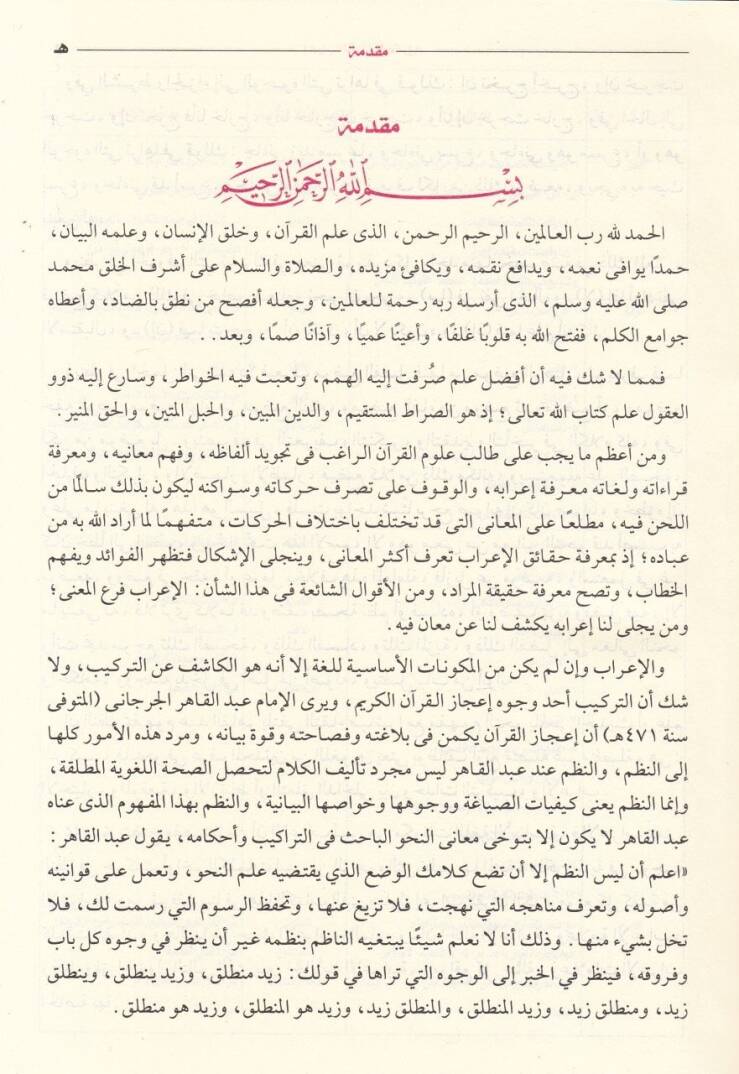 مقدمة هـ
مقدمة
بسم الله الرحمن الرحيم
الحمد لله رب العالمين، الرحيم الرحمن، الذى علم القرآن، وخلق الإنسان، وعلمه البيان،
حمدًا يوافى نعمه، ويدافع نقمه، ويكافئ مزيده، والصلاة والسلام على أشرف الخلق محمد
صلى الله عليه وسلم، الذى أرسله ربه رحمة للعالمين، وجعله أفصح من نطق بالضاد، وأعطاه
جوامع الكلم، ففتح الله به قلوبًا غلفًا، وأعينًا عميًا، وآذانًا صمًا، وبعد..
فمما لا شك فيه أن أفضل علم صُرفت إليه الهمم، وتعبت فيه الخواطر، وسارع إليه ذوو
العقول علم كتاب الله تعالى؛ إذ هو الصراط المستقيم، والدين المبين، والحبل المتين، والحق المنير.
ومن أعظم ما يجب على طالب علوم القرآن الراغب فى تجويد ألفاظه، وفهم معانيه، ومعرفة
قراءاته ولغاته معرفة إعرابه، والوقوف على تصرف حركاته وسواكنه ليكون بذلك سالمًا من
اللحن فيه، مطلعًا على المعانى التى قد تختلف باختلاف الحركات، متفهمًا لما أراد الله به من
عباده؛ إذ بمعرفة حقائق الإعراب تعرف أكثر المعانى، وينجلى الإشكال فتظهر الفوائد ويفهم
الخطاب، وتصح معرفة حقيقة المراد، ومن الأقوال الشائعة فى هذا الشأن: الإعراب فرع المعنى؛
ومن يجلى لنا إعرابه يكشف لنا عن معان فيه.
والإعراب وإن لم يكن من المكونات الأساسية للغة إلا أنه هو الكاشف عن التركيب، ولا
شك أن التركيب أحد وجوه إعجاز القرآن الكريم، ويرى الإمام عبد القاهر الجرجانى (المتوفى
سنة ٤٧١هـ) أن إعجاز القرآن يكمن فى بلاغته وفصاحته وقوة بيانه، ومرد هذه الأمور كلها
إلى النظم، والنظم عند عبد القاهر ليس مجرد تأليف الكلام لتحصل الصحة اللغوية المطلقة،
وإنما النظم يعنى كيفيات الصياغة ووجوهها وخواصها البيانية، والنظم بهذا المفهوم الذى عناه
عبد القاهر لا يكون إلا بتوخى معانى النحو الباحث فى التراكيب وأحكامه، يقول عبد القاهر:
«اعلم أن ليس النظم إلا أن تضع كلامك الوضع الذي يقتضيه علم النحو، وتعمل على قوانينه
وأصوله، وتعرف مناهجه التي نهجت، فلا تزيغ عنها، وتحفظ الرسوم التي رسمت لك، فلا
تخل بشيء منها. وذلك أنا لا نعلم شيئًا يبتغيه الناظم بنظمه غير أن ينظر في وجوه كل باب
وفروقه، فينظر في الخبر إلى الوجوه التي تراها في قولك: زيد منطلق، وزيد ينطلق، وينطلق
زيد، ومنطلق زيد، وزيد المنطلق، والمنطلق زيد، وزيد هو المنطلق، وزيد هو منطلق.